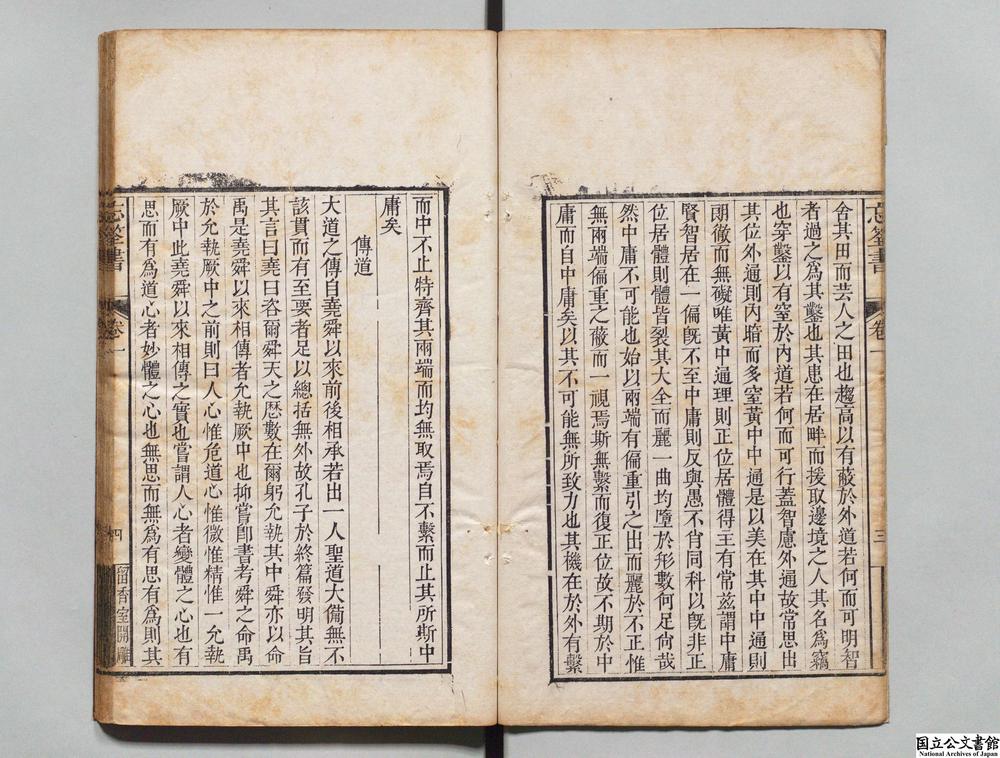 忘筌書
卷一
三
舍其田而芸人之田也趨高以有蔽於外道若何而可明智
者過之爲其鑿也其患在居畔而援取邊境之人其名爲竊
也穿鑿以有窒於內道若何而可行蓋智慮外通故當思出
其位外通則內暗而多窒黃中中通是以美在其中中通則
朗徹而無礙唯黃中通理則正位居體得主有常茲謂中庸
賢智居在一偏旣不至中庸則反與愚不肖同科以旣非正
位居體則體皆裂其大全而麗一曲均墮於形數何足尙哉
然中庸不可能也始以兩端有偏重引之出而麗於不正惟
無兩端偏重之蔽而一視焉斯無繫而復正位故不期於中
庸而自中庸矣以其不可能無所致力也其機在於外有繫
而中不止特齊其兩端而均無取焉自不繫而止其所斯中
庸矣
傳道
大道之傳自堯舜以來前後相承若出一人聖道大備無不
該貫而有至要者足以總括無外故孔子於終篇發明其旨
其言曰堯曰咨爾舜天之曆數在爾躬允執其中舜亦以命
禹是堯舜以來相傳者允執厥中也抑嘗卽書考舜之命禹
於允執厥中之前則曰人心惟危道心惟微惟精惟一允執
厥中此堯舜以來相傳之實也嘗謂人心者變體之心也有
思而有爲道心者妙體之心也無思而無爲有思有爲則其
忘筌書
卷一
四
留香室開雕
国立公文書館
National Archives of Japan